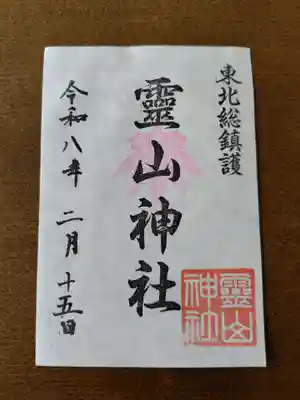 東北総鎮護
靈山神社
令和八年 二月十五日
靈山
神社